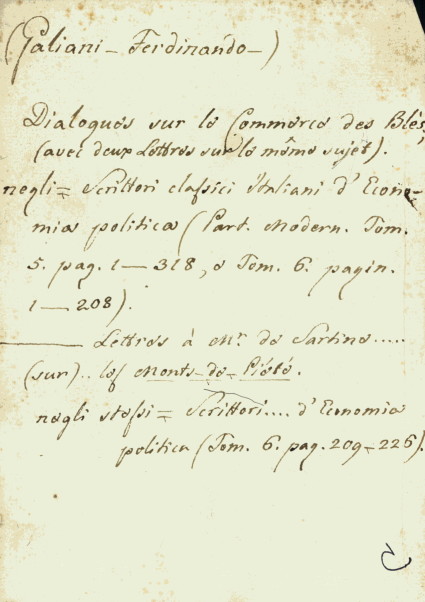 (Galiani - Ferdinando -)
Dialogues sur le Commerce des Blés,
(avec deux Lettres sur le même sujet).
negli = Scrittori classici italiani d'Econo-
mia politica (Part. Modern. Tom.
5. pag. 1 — 318, e Tom. 6. pagin.
1 — 208).
——— Lettres à Mr. de Sartine.....
(sur).. les Monts-de-Piété.
negli stessi = Scrittori.... d'Economia
politica (Tom. 6. pag. 209-226).